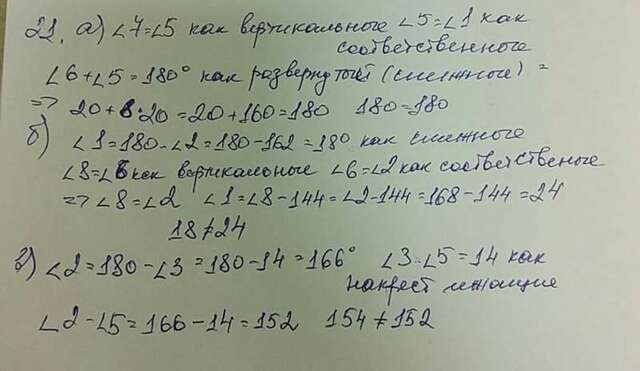 21. а) ∠7=∠5 как вертикальные ∠5=∠1 как
соответственные
∠6+∠5=180° как развернутый (смежные) =
=> 20+8·20=20+160=180 180=180
б) ∠1=180-∠2=180-162=18° как смежного
∠8=∠6 как вертикальные ∠6=∠2 как соответственые
=> ∠8=∠2 ∠1=∠8-144=∠2-144=168-144=24
18≠24
в) ∠2=180-∠3=180-14=166° ∠3=∠5=14 как
накрест лежащие
∠2-∠5=166-14=152 154≠152